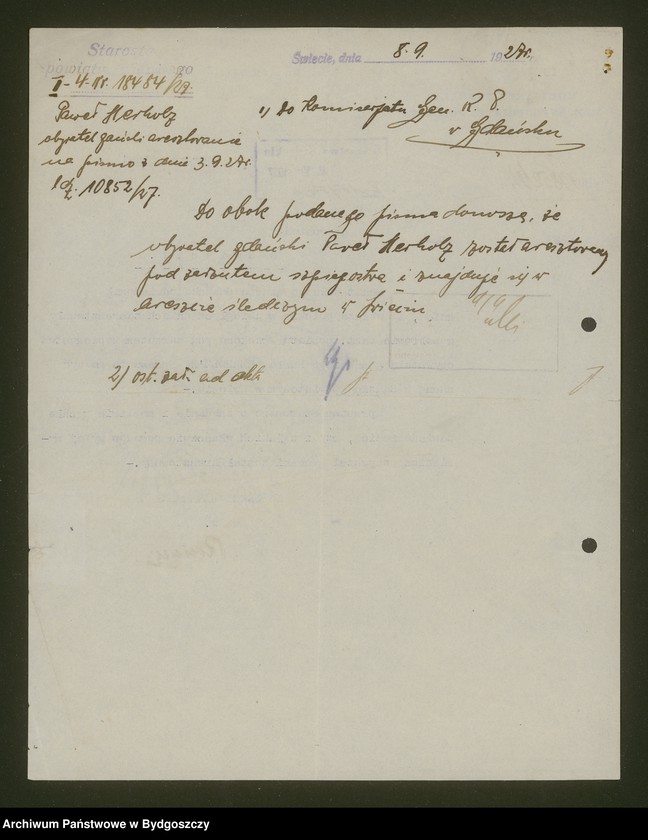 Starosta
Powiatu
Świecie, dnia 8.9. 1927r.
I-4-Nr. 18484/27.
Paweł Herholz
obywatel gdański aresztowanie
na pismo z dnia 3.9.27r.
ldz. 10852/27.
1/ Do Komisarjatu Gen. R. P.
w Gdańsku
Do obok podanego pisma donoszę, że
obywatel gdański Paweł Herholz został aresztowany
pod zarzutem szpiegostwa i znajduje się w
areszcie śledczym w Świeciu
2/ ost. zał. ad akta
Archiwum Państwowe w Bydgoszczy